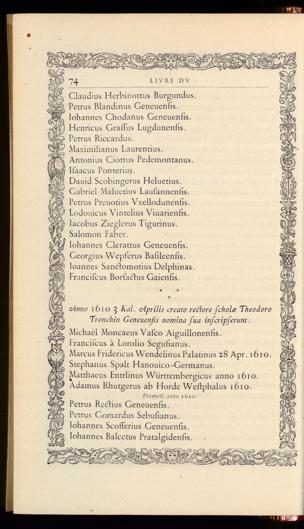 74 LIVRE DV
Claudius Herbinottus Burgundus.
Petrus Blandinus Geneuenſis.
Iohannes Chodanus Geneuenſis.
Henricus Graſſus Lugdunenſis.
Petrus Riccardus.
Maximilianus Laurentius.
Antonius Ciottus Pedemontanus.
Iſaacus Ponterius.
Dauid Scobingerus Heluetius.
Gabriel Maluetius Lauſannenſis.
Petrus Preuotius Vxellodunenſis.
Lodouicus Vintelius Viuarienſis.
Iacobus Zieglerus Tigurinus.
Salomon Faber.
Iohannes Clerattus Geneuenſis.
Georgius Wepferus Baſileenſis.
Ioannes Sanctomotius Delphinas.
Franciſcus Borſactus Gaienſis.
* * *
Anno 1610 3 Kal. Aprilis creato rectore ſcholæ Theodoro
Tronchin Geneuenſis nomina ſua inſcripſerunt:
Michael Moncaeus Vaſco Aiguillonenſis.
Franciſcus à Lorolio Seguſianus.
Marcus Fridericus Wendelinus Palatinus 28 Apr. 1610.
Stephanus Spalt Hanouico-Germanus.
Matthaeus Entzlinus Württembergicus anno 1610.
Adamus Rhutgerus ab Horde Weſtphalus 1610.
Promoti anno 1610:
Petrus Rectius Geneuenſis.
Petrus Gomardus Sebuſianus.
Iohannes Scofferius Geneuenſis.
Iohannes Balcetus Pratalgidenſis.